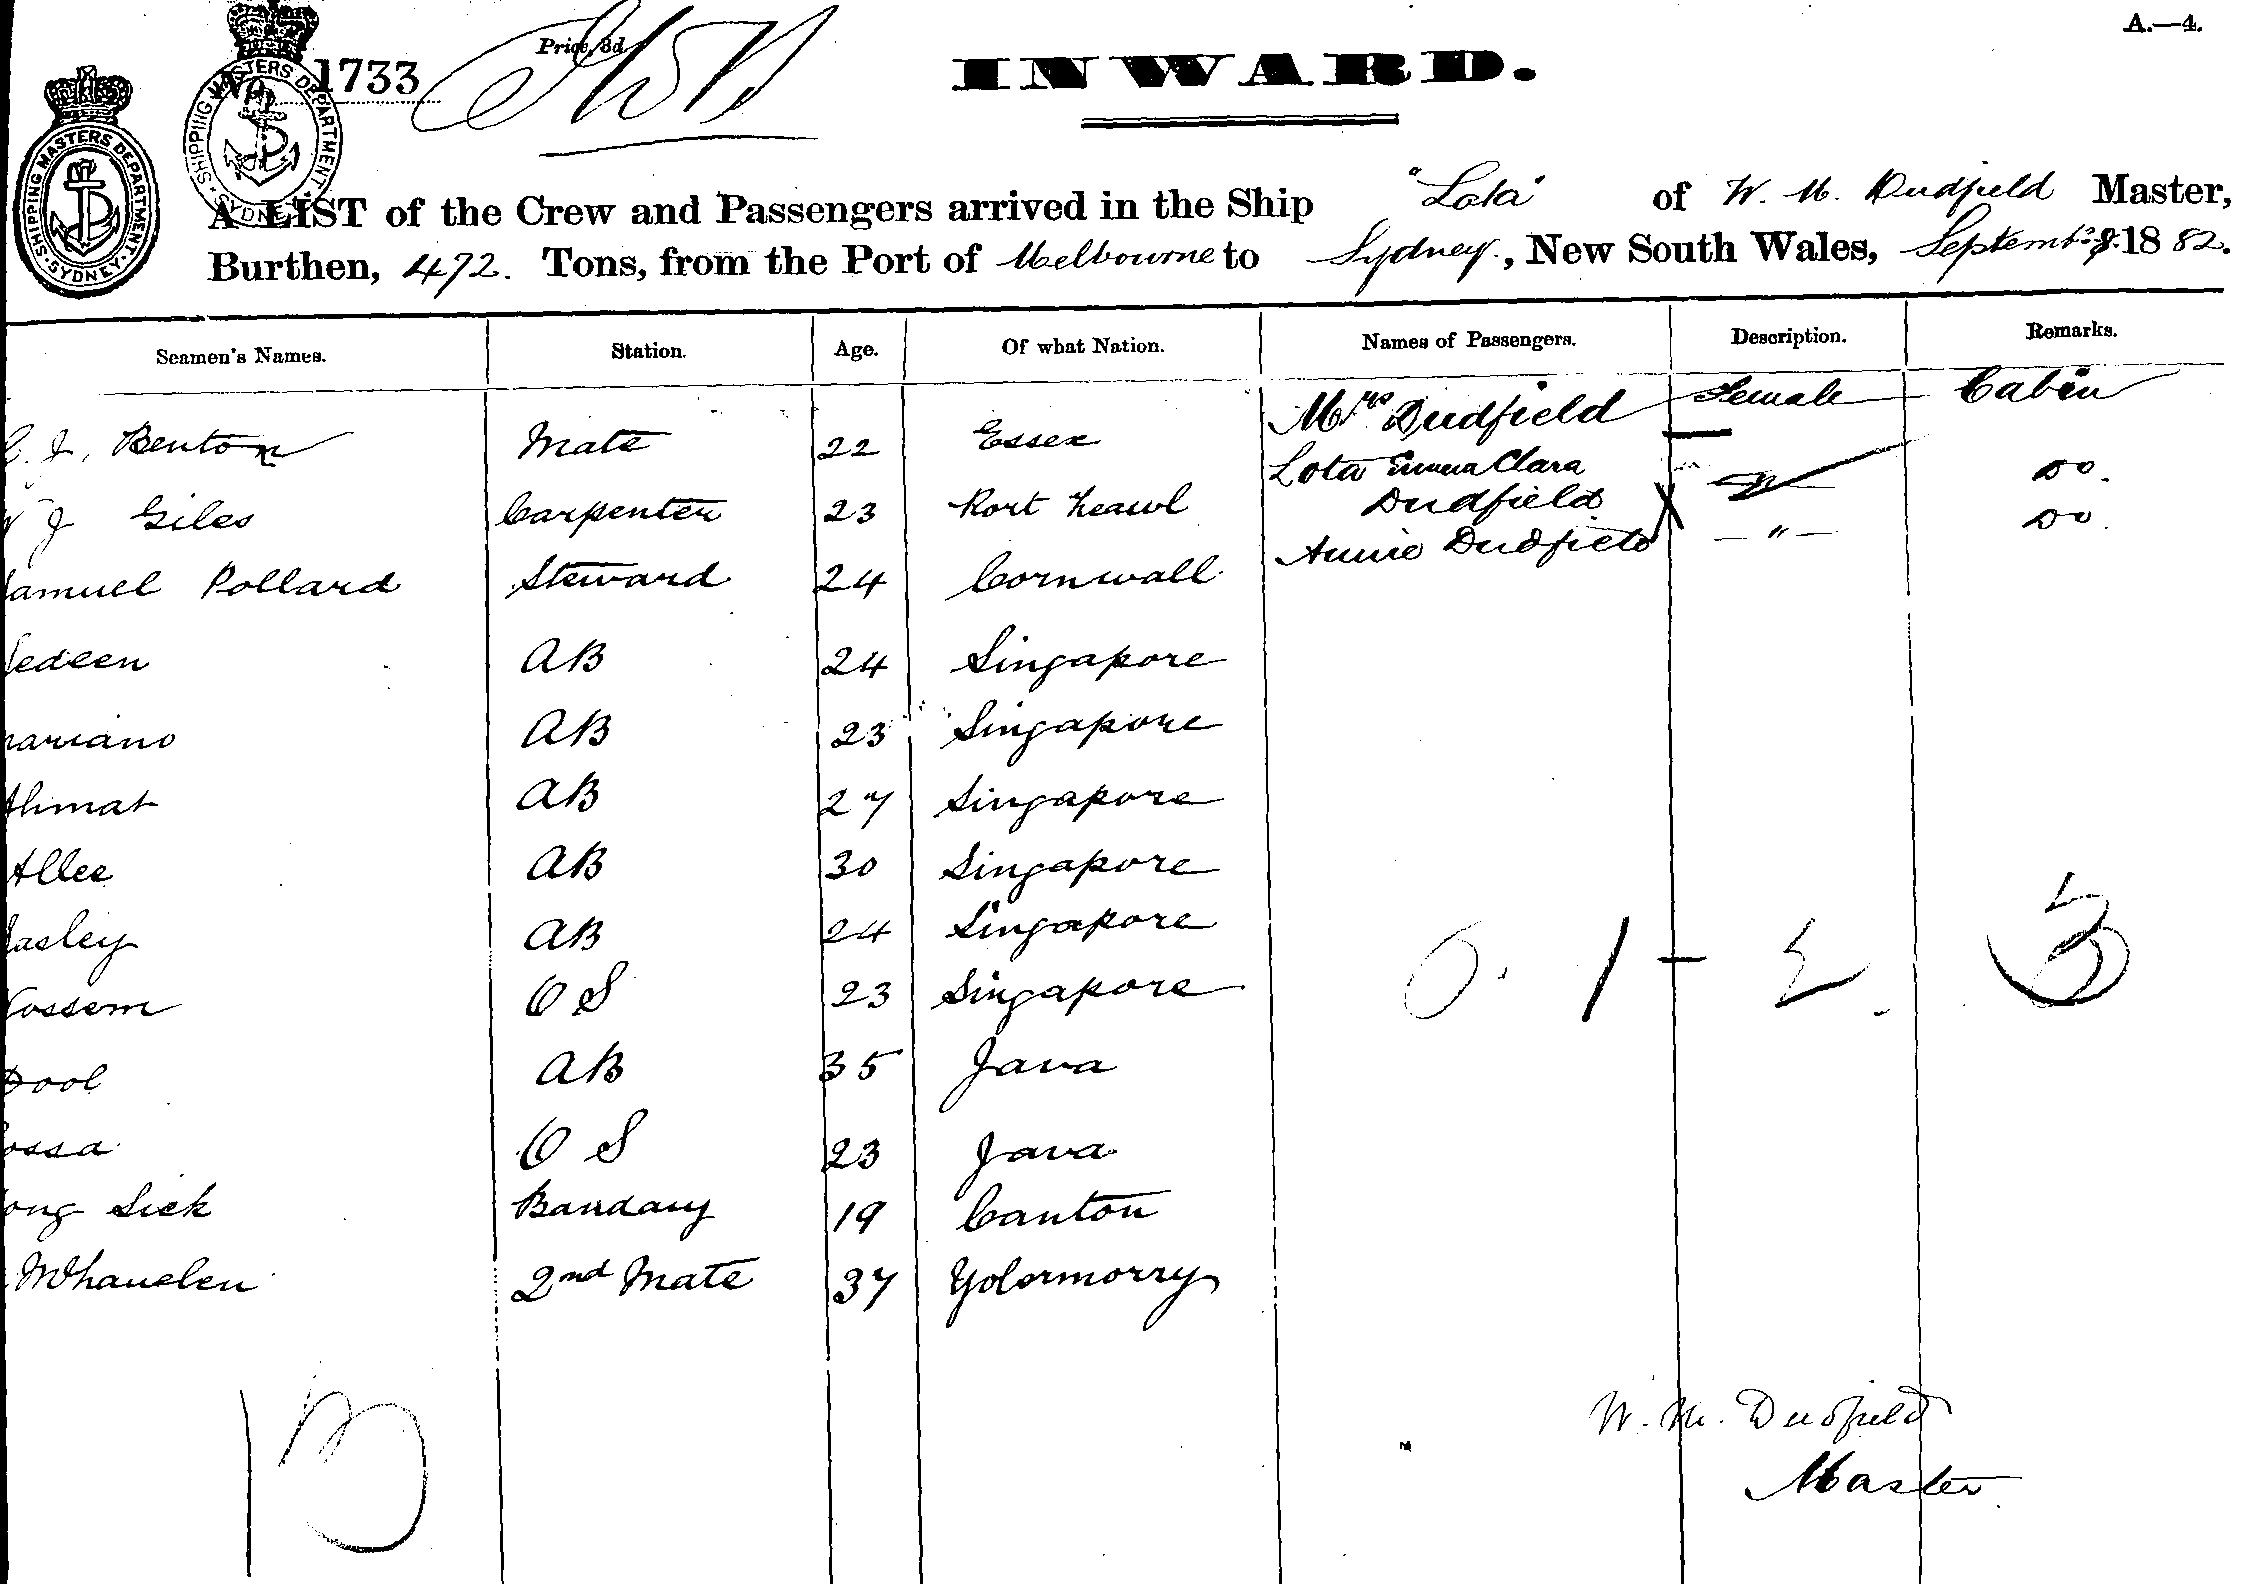 A.—4.
No. 1733
Price, 3d.
INWARD.
SHIPPING MASTERS DEPARTMENT · SYDNEY ·
SHIPPING MASTERS DEPARTMENT · SYDNEY ·
A LIST of the Crew and Passengers arrived in the Ship "Lota" of W. M. Dudfield Master,
Burthen, 472. Tons, from the Port of Melbourne to Sydney, New South Wales, Septembr 8. 1882.
Seamen's Names. Station. Age. Of what Nation. Names of Passengers. Description. Remarks.
Mrs Dudfield Female Cabin
J. Benton Mate 22 Essex
Lota Emma Clara Do.
Dudfield
J Giles Carpenter 23 Port
Annie Dudfield — " — Do.
amuel Pollard Steward 24 Cornwall
edeen AB 24 Singapore
ariano AB 23 Singapore
Ahmat AB 27 Singapore
Allee AB 30 Singapore
asley AB 24 Singapore
ossem OS 23 Singapore
0. 1 — 2. 3
Dool AB 35 Java
ossa OS 23 Java
ong Sick Bandary 19 Canton
2nd Mate 37
13
W. M. Dudfield
Master